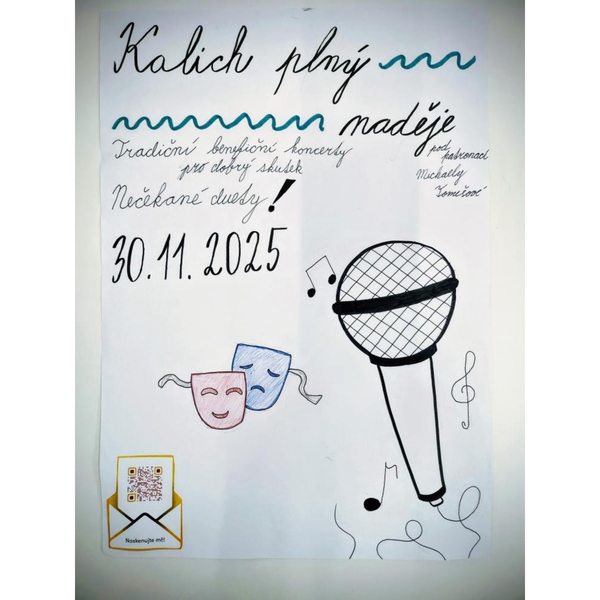 Kalich plný
naděje
Tradiční benefiční koncerty
pro dobrý skutek
pod
patronací
Michaely
Tomešové
Nečekané duety!
30.11.2025
Naskenujte mě!